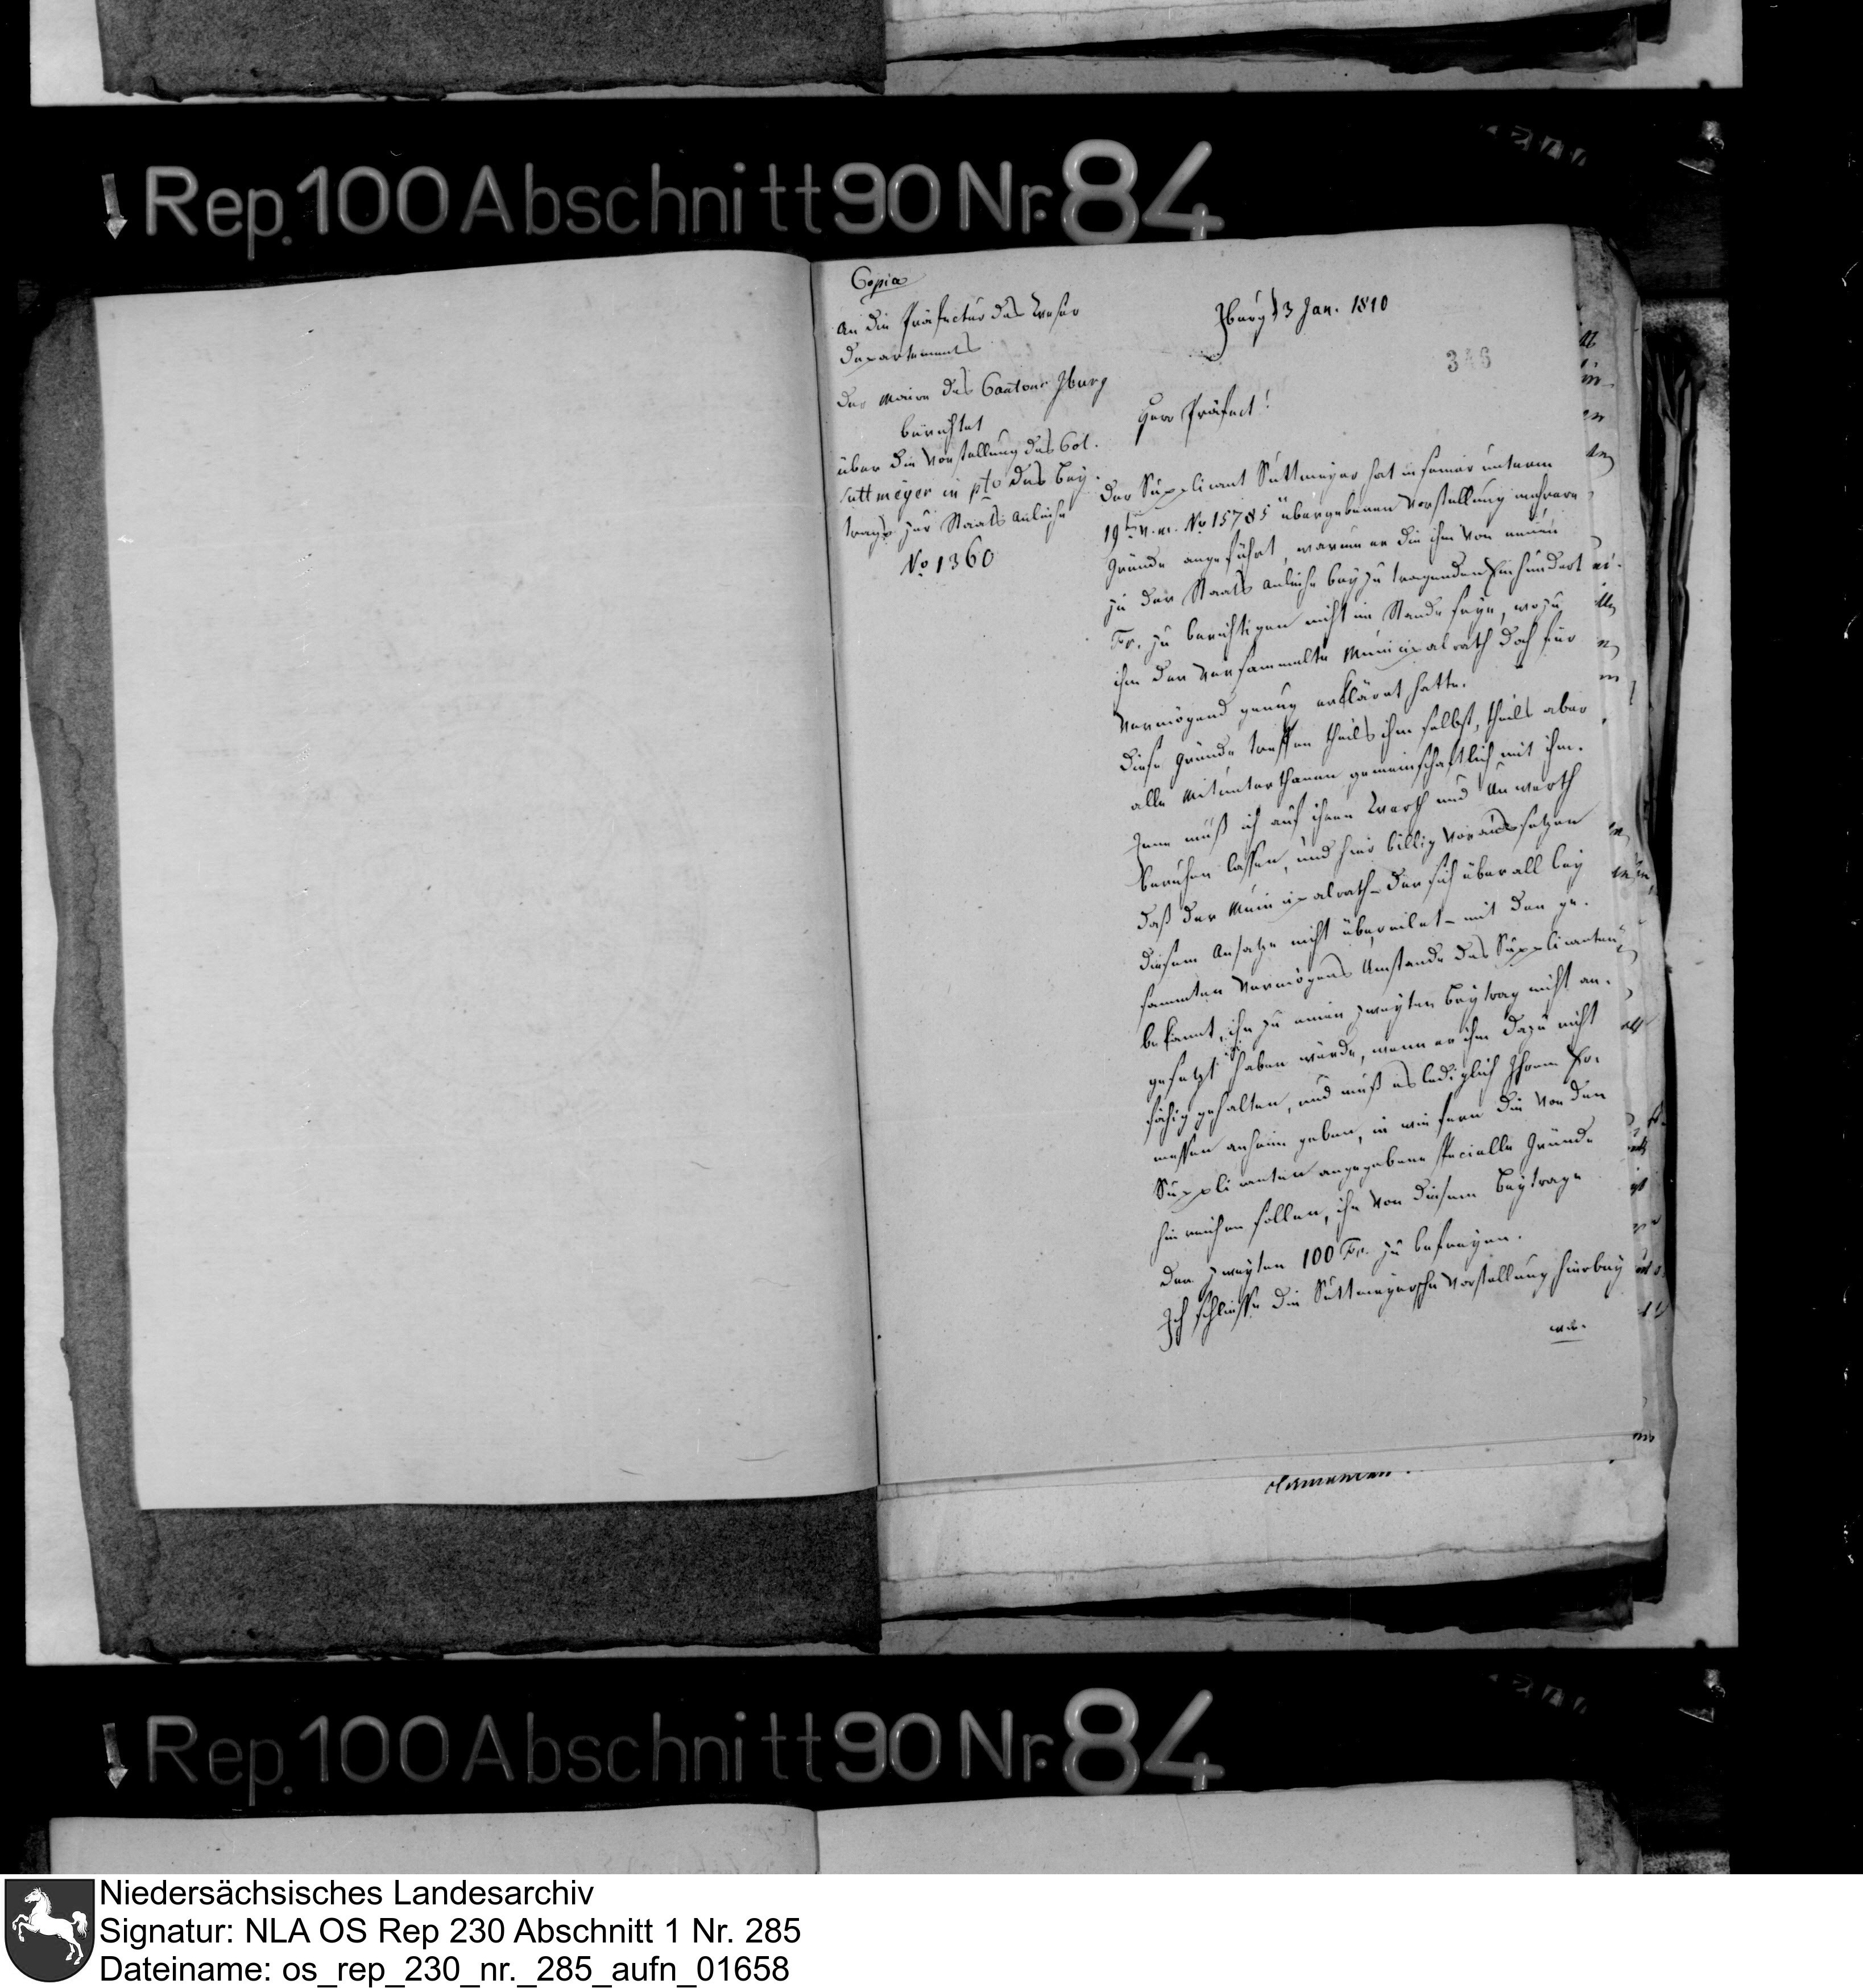 Rep. 100 Abschnitt 90 Nr. 84
Copia
An die Präfectur des Weser
Departements
Der Maire des Cantons Iburg
berichtet
über die Vorstellung des Col.
Suttmeyer in pto des Bey-
trags zur Staats Anleihe
No 1360
Iburg 3 Jan. 1810
346
Herr Präfect!
Der Supplicant Suttmeyer hat in seiner unterm
19ten v. M. No 15785 übergebenen Vorstellung mehrere
Gründe angeführt, warum er die ihm von neuen
zu der Staats Anleihe beyzutragenden Einhundert
Fr. zu berichtigen nicht im Stande seye, wozu
ihn der versammelte Municipalrath doch für
vermögend genug erklärt hatte.
Diese Gründe treffen theils ihm selbst, theils aber
alle Mitunterthanen gemeinschaftlich mit ihm.
Jene muß ich auf ihren Werth und Unwerth
beruhen lassen, und hier billig voraussetzen
daß der Municipalrath – der sich überall bey
diesem Ansatze nicht übereilet – mit den ge-
sammten Vermögens Umstande des Supplicanten
bekannt, ihn zu einen zweyten Beytrag nicht an-
gesetzt haben würde, wenn er ihn dazu nicht
fähig gehalten, und muß es lediglich Ihrem Er-
messen anheim geben, in wie fern die von den
Supplicanten angegebene specielle Gründe
hinreichen sollen, ihn von diesem Beytrage
der zweyten 100 Fr. zu befreyen.
Ich schliesse die Suttmeyersche Vorstellung hierbey
Rep. 100 Abschnitt 90 Nr. 84
Niedersächsisches Landesarchiv
Signatur: NLA OS Rep 230 Abschnitt 1 Nr. 285
Dateiname: os_rep_230_nr._285_aufn_01658